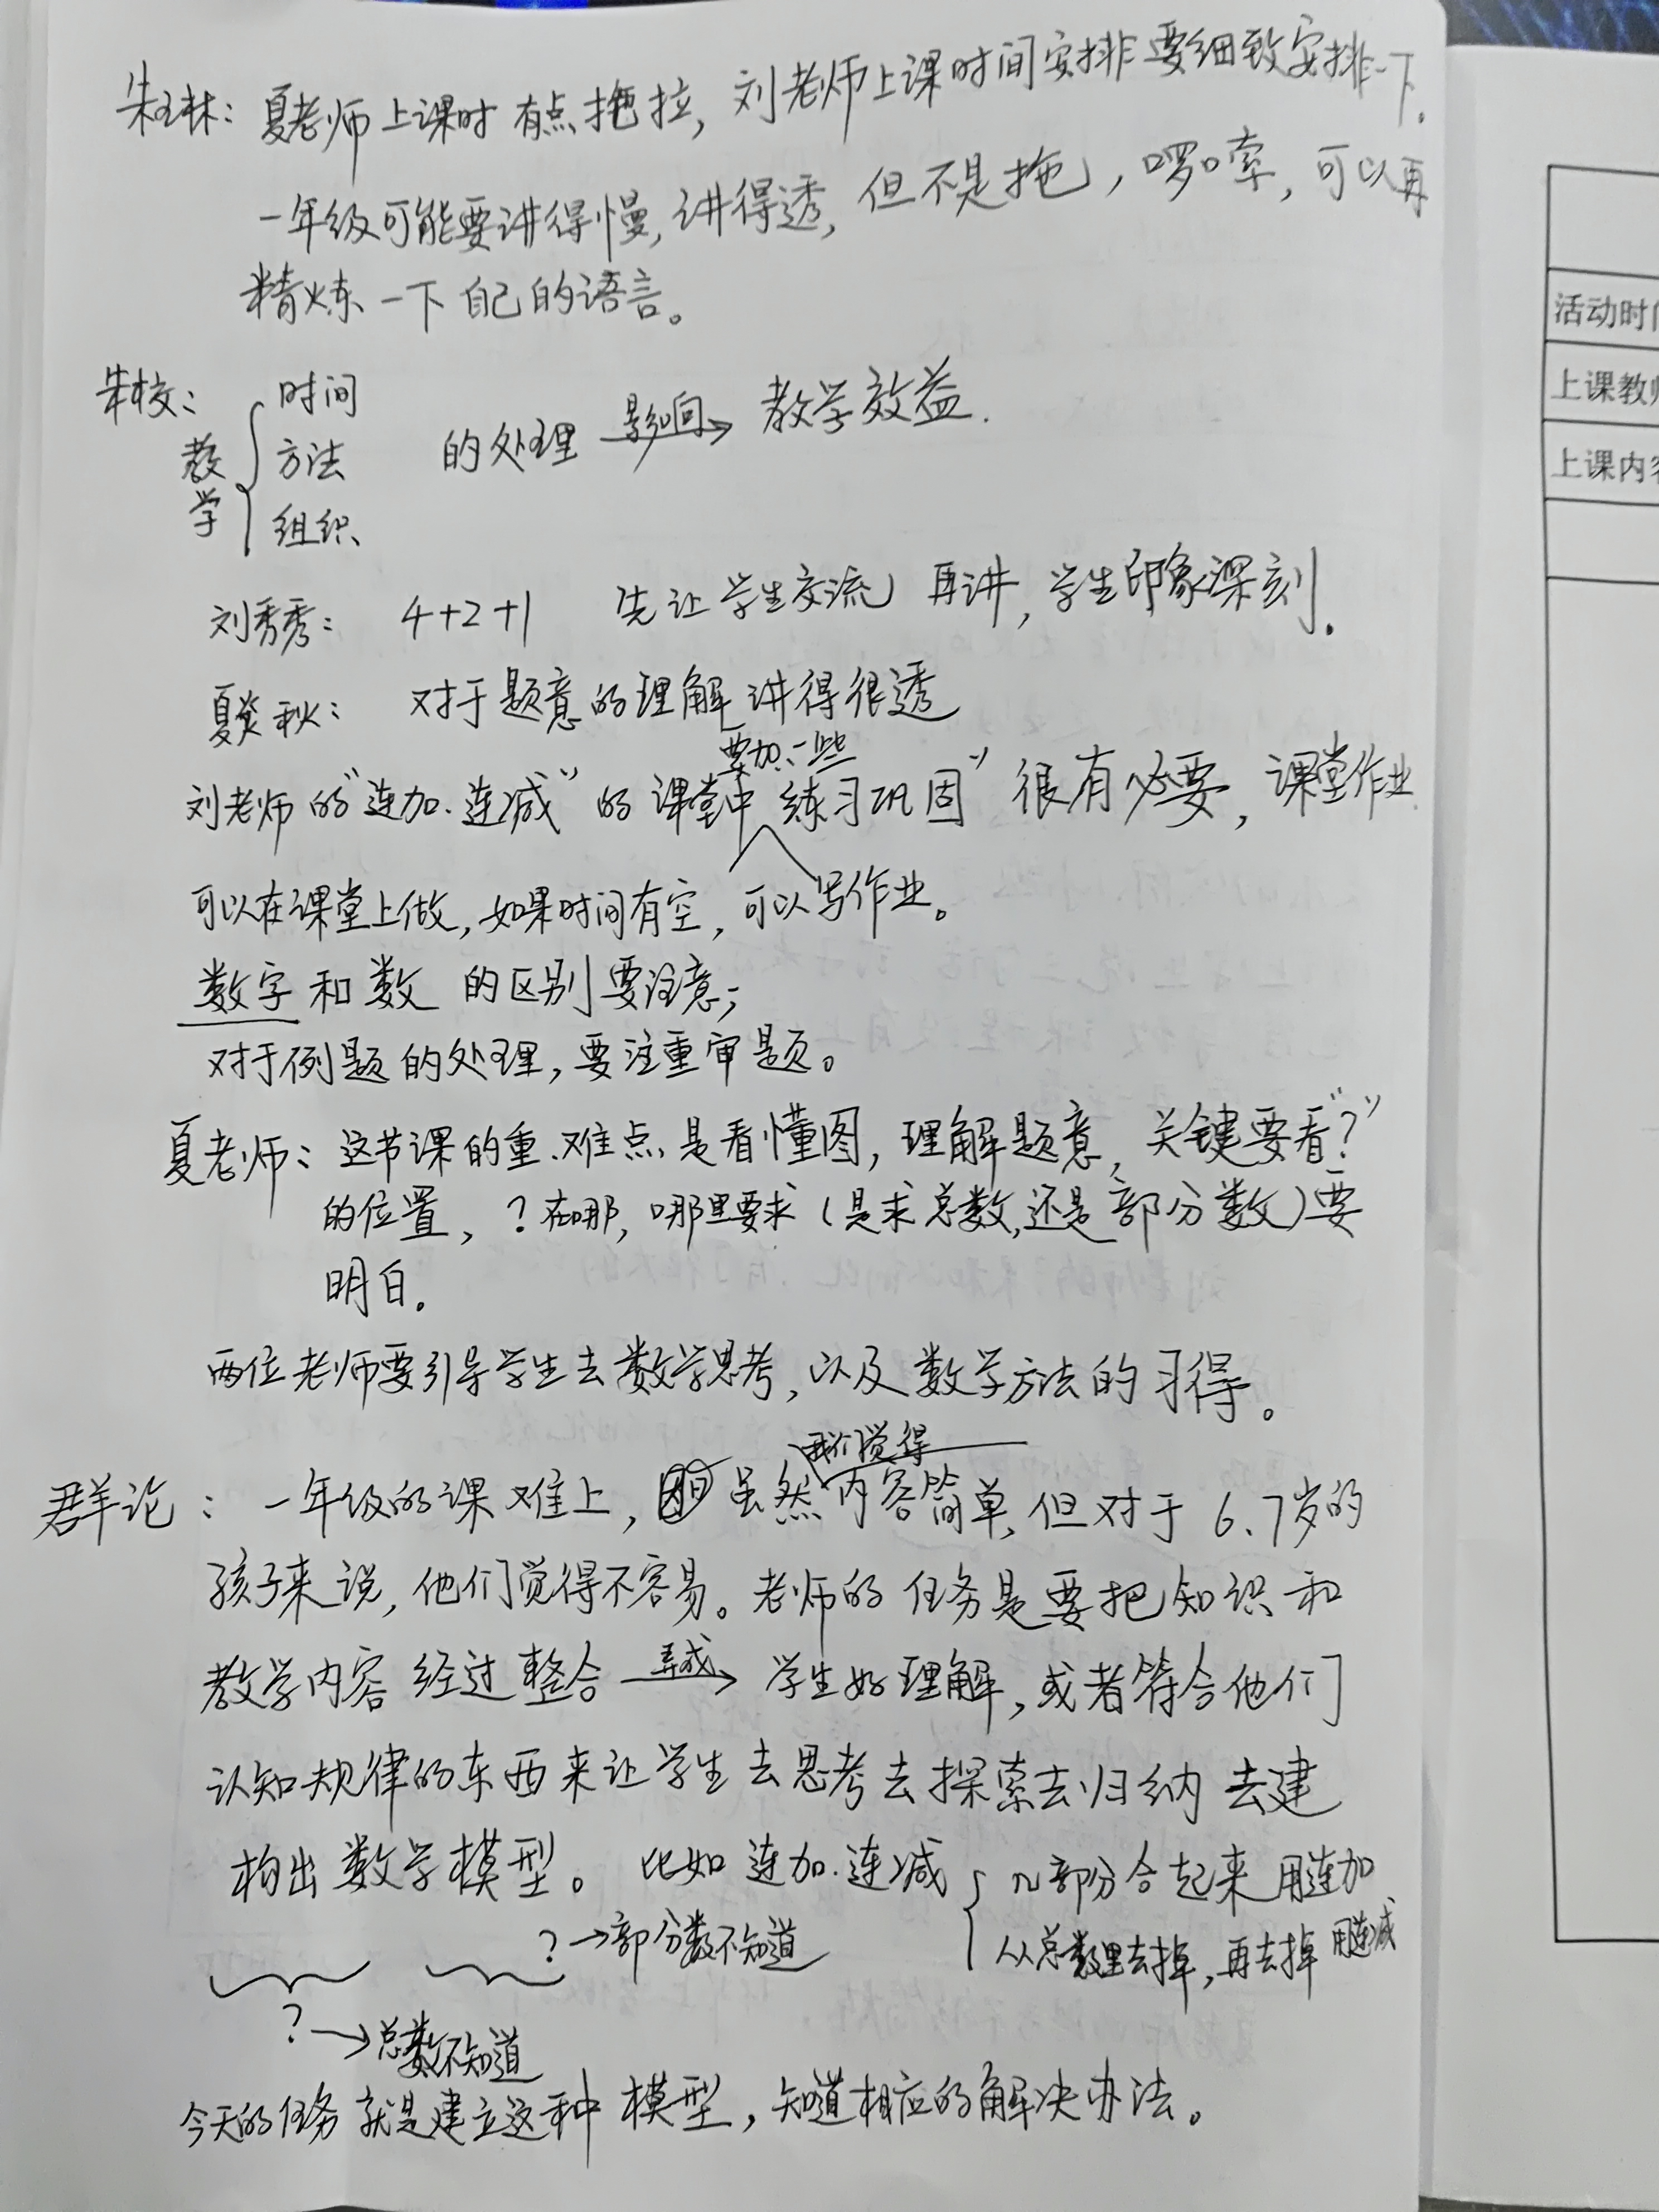 朱玉林：夏老师上课时有点拖拉，刘老师上课时间安排要细致安排一下。
一年级可能要讲得慢，讲得透，但不是拖，啰嗦，可以再
精炼一下自己的语言。
朱校：
教学
时间
方法
组织
的处理 影响→ 教学效益.
刘秀秀： 4+2+1 先让学生交流 再讲，学生印象深刻.
夏炎秋： 对于题意的理解讲得很透
要加一些
刘老师的“连加.连减”的课堂中 练习巩固” 很有必要，课堂作业
可以在课堂上做，如果时间有空，可以写作业。
数字和数 的区别要注意；
对于例题的处理，要注重审题。
夏老师：这节课的重.难点是看懂图，理解题意，关键要看“？”
的位置，？在哪，哪里要求（是求总数，还是部分数）要
明白。
两位老师要引导学生去数学思考，以及数学方法的习得。
我们觉得
群论：一年级的课难上， 虽然内容简单，但对于6、7岁的
孩子来说，他们觉得不容易。老师的任务是要把知识和
教学内容经过整合 弄成→ 学生好理解，或者符合他们
认知规律的东西来让学生去思考去探索去归纳去建
构出数学模型。比如连加.连减
几部分合起来用连加
从总数里去掉，再去掉用连减
？→部分数不知道
？→总数不知道
今天的任务就是建立这种模型，知道相应的解决办法。
活动时间
上课教师
上课内容